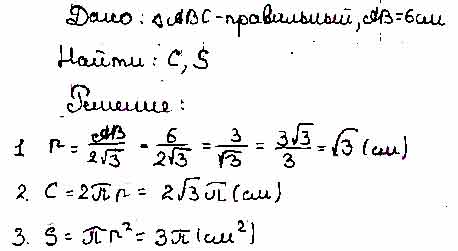 Дано: △ABC-правильный, AB=6см
Найти: C, S
Решение:
1 r = AB/2√3 = 6/2√3 = 3/√3 = 3√3/3 = √3 (см)
2. C = 2πr = 2√3π(см)
3. S = πr² = 3π(см²)